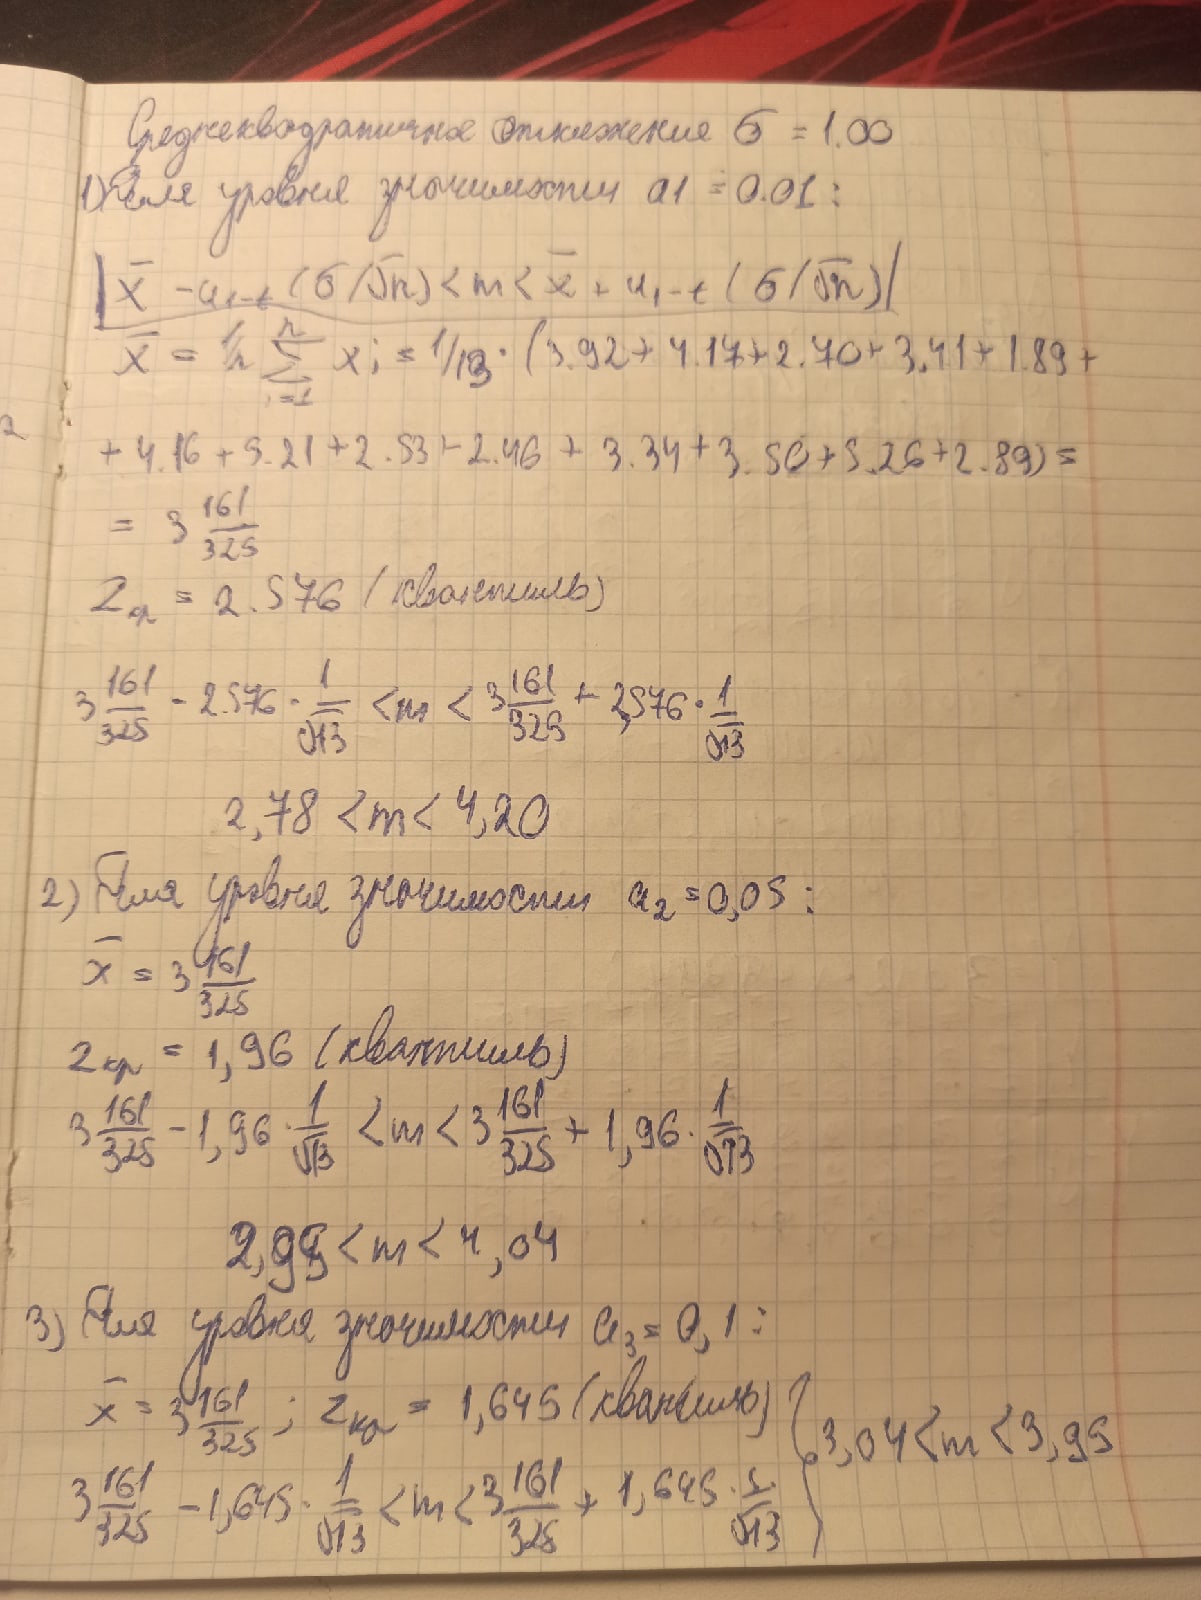 Среднеквадратичное отклонение σ = 1.00
1) Для уровня значимости a1 = 0.01:
|x̄ - u₁₋ₜ (σ/√n) < m < x̄ + u₁₋ₜ (σ/√n)|
x̄ = 1/n ∑ᵢ₌₁ⁿ xᵢ = 1/13 · (3.92 + 4.17 + 2.70 + 3.41 + 1.89 +
+ 4.16 + 5.21 + 2.53 + 2.46 + 3.34 + 3.50 + 5.26 + 2.89) =
= 3 161/325
Zкр = 2.576 (квантиль)
3 161/325 - 2.576 · 1/√13 < m < 3 161/325 + 2,576 · 1/√13
2,78 < m < 4,20
2) Для уровня значимости a₂ = 0,05:
x̄ = 3 161/325
Zкр = 1,96 (квантиль)
3 161/325 - 1,96 · 1/√13 < m < 3 161/325 + 1,96 · 1/√13
2,95 < m < 4,04
3) Для уровня значимости a₃ = 0,1:
x̄ = 3 161/325 ; Zкр = 1,645 (квантиль)
3 161/325 - 1,645 · 1/√13 < m < 3 161/325 + 1,645 · 1/√13
} 3,04 < m < 3,95